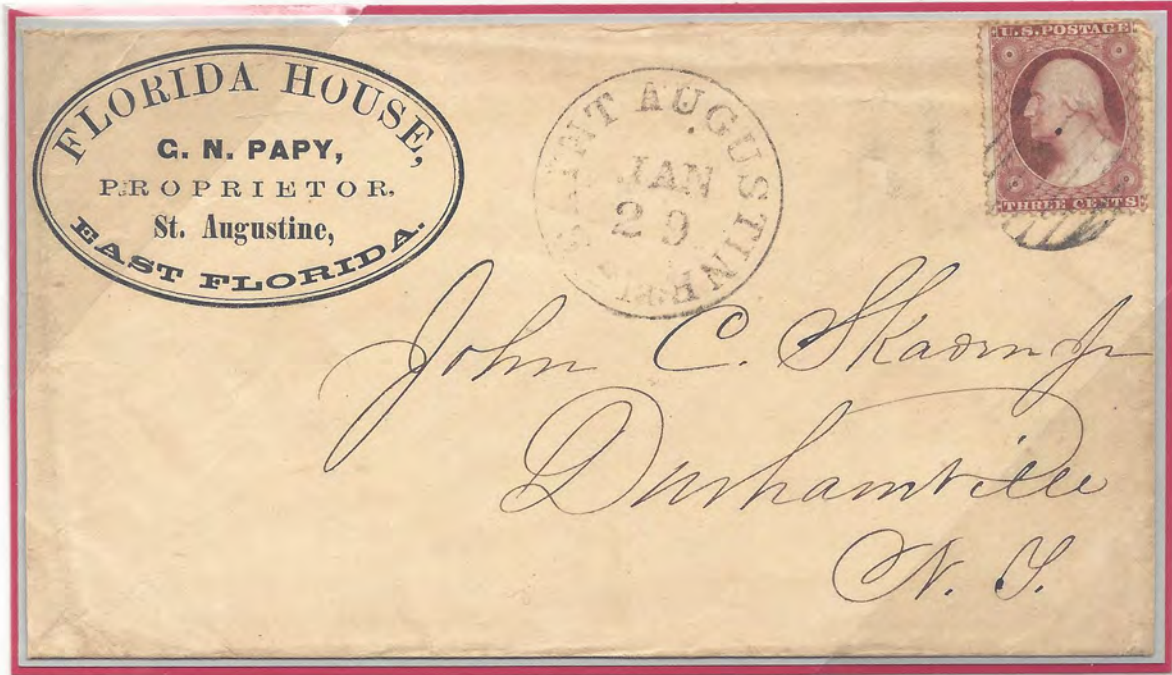 FLORIDA HOUSE,
G. N. PAPY,
PROPRIETOR,
St. Augustine,
EAST FLORIDA.
SAINT AUGUSTINE
JAN
29
U.S. POSTAGE
THREE CENTS
John C.
Durhamville
N. Y.